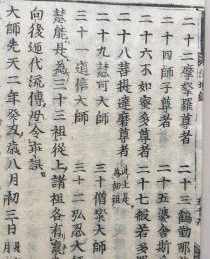 二十二摩拏羅尊者　二十三鶴勒那
二十四師子尊者　二十五婆舍斯
二十六不如蜜多尊者　二十七般若多
二十八菩提達磨尊者　此土是為初祖
二十九慧可大師　三十僧璨大師
三十一道信大師　三十二弘忍大師
慧能是為三十三祖從上諸祖各有稟
向後遞代流傳毋令乖誤
大師先天二年癸丑歲八月初三日